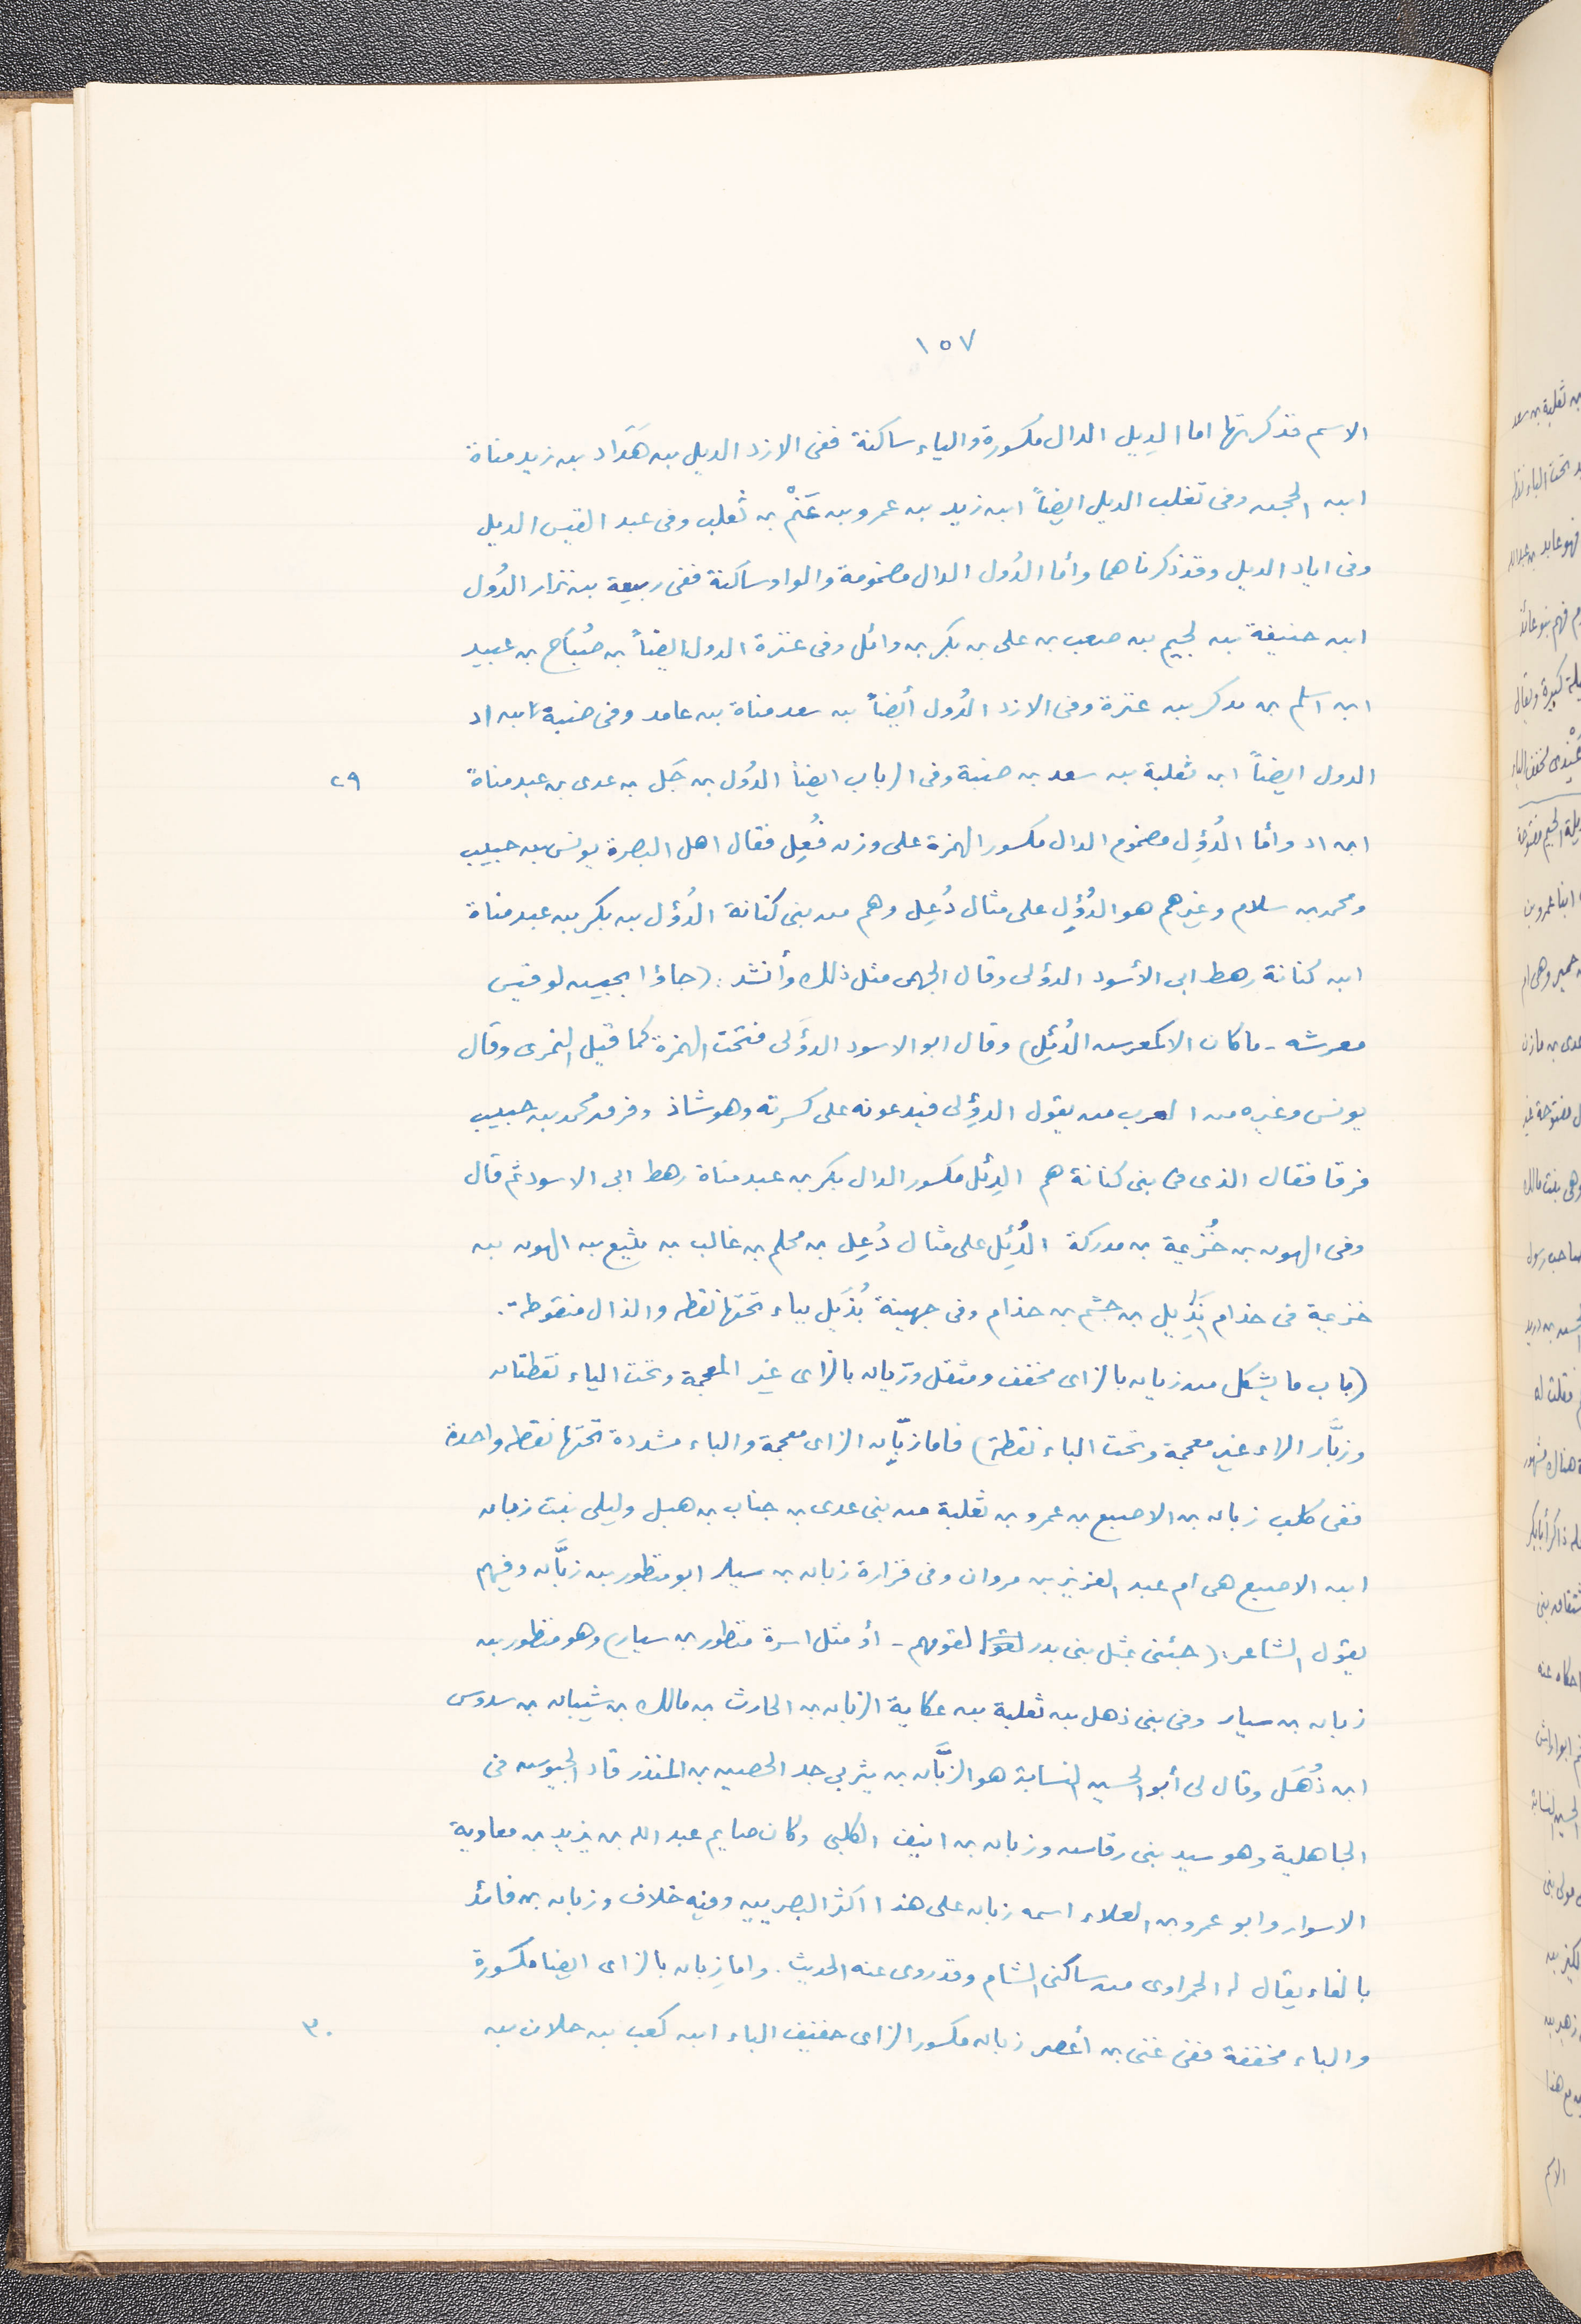 ١٥٧
الاسم فذكرتها اما الدِيل الدال مكسورة والياء ساكنة ففى الازد الديل بن هَدَاد بن زيد مناة
ابن الحجر وفى تغلب الديل ايضاً ابن زيد بن عمرو بن غَنْم بن تغلب وفى عبد القيس الديل
وفى اياد الديل وقد ذكرناهما وأما الدُول الدال مضمومة والواو ساكنة ففى ربيعة بن نزار الدُول
ابن حنيفة بن لجيم بن صعب بن على بن بكر بن وائل وفى عنزة الدول ايضاً بن صُبَاح بن عبيد
ابن اسلم بن مدكر بن عنزة وفى الازد الدُول أيضاً بن سعد مناة بن غامد وفى ضبة بن اد
الدول ايضاً ابن ثعلبة بن سعد بن ضبة وفى الرباب ايضاً الدوُل بن جَل بن عدى بن عبد مناة
٢٩
ابن اد وأما الدُؤِل مضموم الدال مكسور الهمزة على وزن فُعِل فقال اهل البصرة يونس بن حبيب
ومحمد بن سلام وغيرهم هو الدُؤِل على مثال دُعِل وهم من بنى كنانة الدُؤل بن بكر بن عبد مناة
ابن كنانة رهط ابى الأسود الدؤلى وقال الجهمى مثل ذلك وأنشد: (جاؤا بجيش لو قيس
معرسه - ما كان الا كمعرس الدُئِل) وقال ابو الاسود الدؤَلى فتحت الهمزة كما قيل النمرى وقال
يونس وغيره من العرب من يقول الدؤِلى فيدعونه على كسرته وهو شاذ وفرق محمد بن حبيب
فرقا فقال الذى فى بنى كنانة هم الدِئل مكسور الدال بكر بن عبد مناة رهط ابى الاسود ثم قال
وفى الهون بن خُزيمة بن مدركة الدُئِل على مثال دُعِل بن محلم بن غالب بن يثيع بن الهون بن
خزيمة فى جذام بَذِيل بن جشم بن جذام وفى جهينة بُذَيل بباء تحتها نقطه والذال منقوطة.
(باب ما يشكل من زبان بالزاى مخفف ومثقل وريان بالراى غير المعجمة وتحت الياء نقطتان
وزبَّار الراء غير معجمة وتحت الباء نقطة) فاما زبّان الزاى معجمة والباء مشددة تحتها نقطه واحدة
ففى كلب زبان بن الاصبع بن عمرو بن ثعلبة من بنى عدى بن جناب بن هبل وليلى بنت زبان
ابن الاصبع هى ام عبد العزيز بن مروان وفى فزارة زبان بن سيار ابو منظور بن زبَّان وفيهم
يقول الشاعر: (جئنى بمثل بنى بدر لقومهم - أو مثل اسرة منظور بن سيار) وهو منظور بن
زبان بن سيار وفى بنى ذهل بن ثعلبة بن عكابة الزبان بن الحارث بن مالك بن شيبان بن سدوس
ابن ذُهَل وقال لى أبو الحسين النسابة هو الزبَّان بن يثربى جد الحصين بن المنذر قاد الجيوس فى
الجاهلية وهو سيد بنى رقاش وزبان بن انيف الكلبى وكان صايم عبد الله بن يزيد بن معاوية
الاسوار وابو عمرو بن العلاء اسمه زبان على هذا اكثر البصريين وفيه خلاف وزبان بن فائد
بالفاء يقال له الحمراوى من ساكنى الشام وقد روى عنه الحديث. واما زِبان بالزاى ايضا مكسورة
والباء مخففة ففى غنى بن أعصر زبان مكسور الزاى خفيف الباء ابن كعب بن جلان بن
٣٠